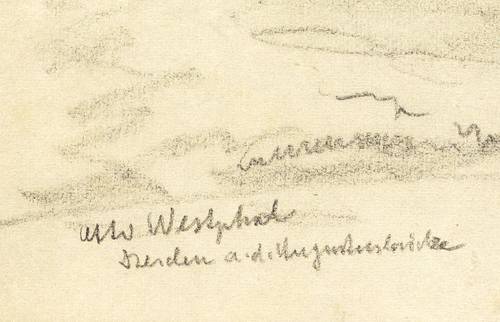 Otto Westphal
Dresden a.d. Augustusbrücke